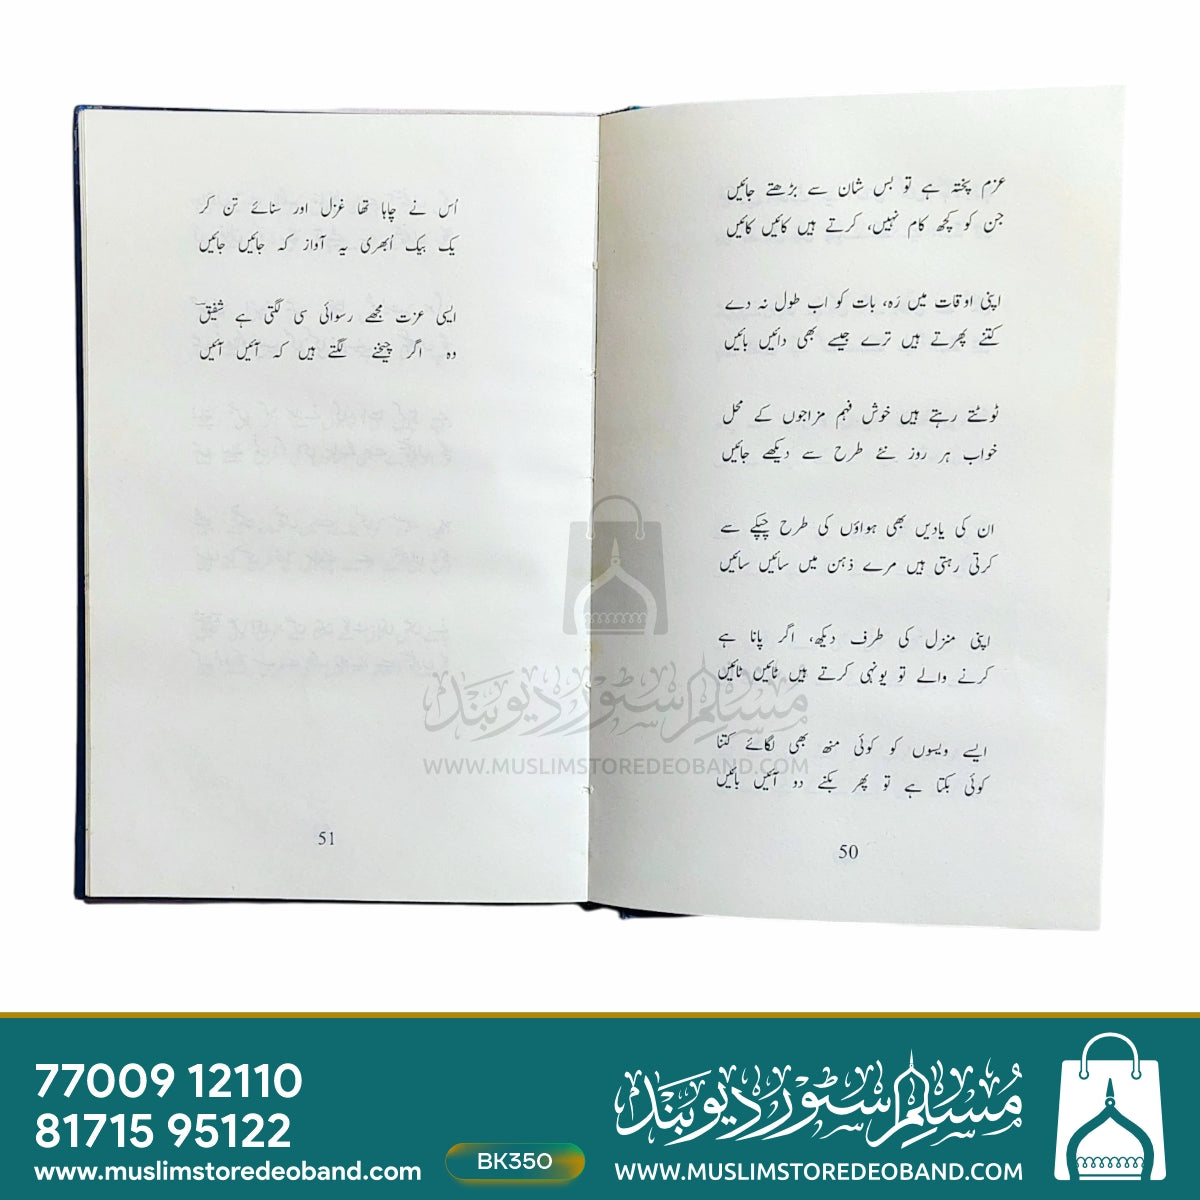 عزم پختہ ہے تو بس شان سے بڑھتے جائیں
جن کو کچھ کام نہیں، کرتے ہیں کائیں کائیں
اپنی اوقات میں رَہ، بات کو اب طول نہ دے
کتنے پھرتے ہیں ترے جیسے بھی دائیں بائیں
ٹوٹتے رہتے ہیں خوش فہم مزاجوں کے محل
خواب ہر روز نئے طرح سے دیکھے جائیں
ان کی یادیں بھی ہواؤں کی طرح چپکے سے
کرتی رہتی ہیں مرے ذہن میں سائیں سائیں
اپنی منزل کی طرف دیکھ، اگر پانا ہے
کرنے والے تو یونہی کرتے ہیں ٹائیں ٹائیں
ایسے ویسوں کو کوئی منھ بھی لگائے کتنا
کوئی بکتا ہے تو پھر بکنے دو آئیں بائیں
50
اُس نے چاہا تھا غزل اور سنائے تن کر
یک بیک اُبھری یہ آواز کہ جائیں جائیں
ایسی عزت مجھے رسوائی سی لگتی ہے شفیقؔ
وہ اگر چیخنے لگتے ہیں کہ آئیں آئیں
51
مسلم سٹور دیوبند
WWW.MUSLIMSTOREDEOBAND.COM
77009 12110
81715 95122
www.muslimstoredeoband.com
BK350
مُسلم سٹور دیوبند
WWW.MUSLIMSTOREDEOBAND.COM